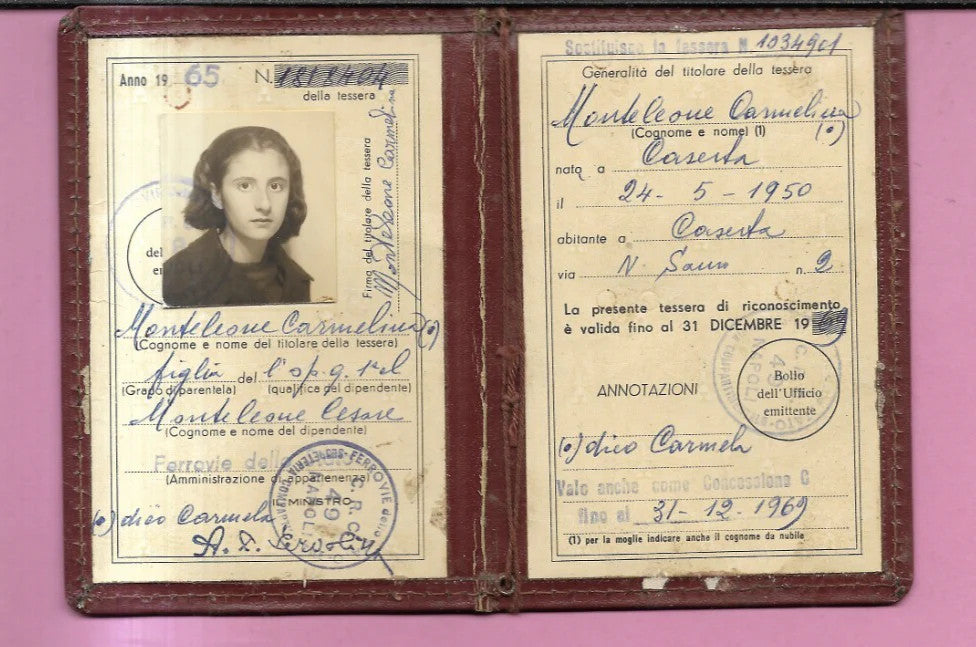 Anno 19 65
N. 1818404
della tessera
Firma del titolare della tessera
Monteleone Carmelina
del
Monteleone Carmelina (•)
(Cognome e nome del titolare della tessera)
figlia del l'op.g. 1ª cl
(Grado di parentela) (qualifica del dipendente)
Monteleone Cesare
(Cognome e nome del dipendente)
Ferrovie dello
(Amministrazione di appartenenza)
IL MINISTRO
(•) dico Carmela
FERROVIE dello
C. R. C.
49
NAPOLI
Sostituisce la tessera N. 1034901
Generalità del titolare della tessera
Monteleone Carmelina
(Cognome e nome) (1) (•)
nata a Caserta
il 24 - 5 - 1950
abitante a Caserta
via N. n. 2
La presente tessera di riconoscimento
è valida fino al 31 DICEMBRE 19
ANNOTAZIONI
Bollo
dell'Ufficio
emittente
NAPOLI
(•) dico Carmela
Vale anche come Concessione C
fino al 31 - 12 - 1969
(1) per la moglie indicare anche il cognome da nubile